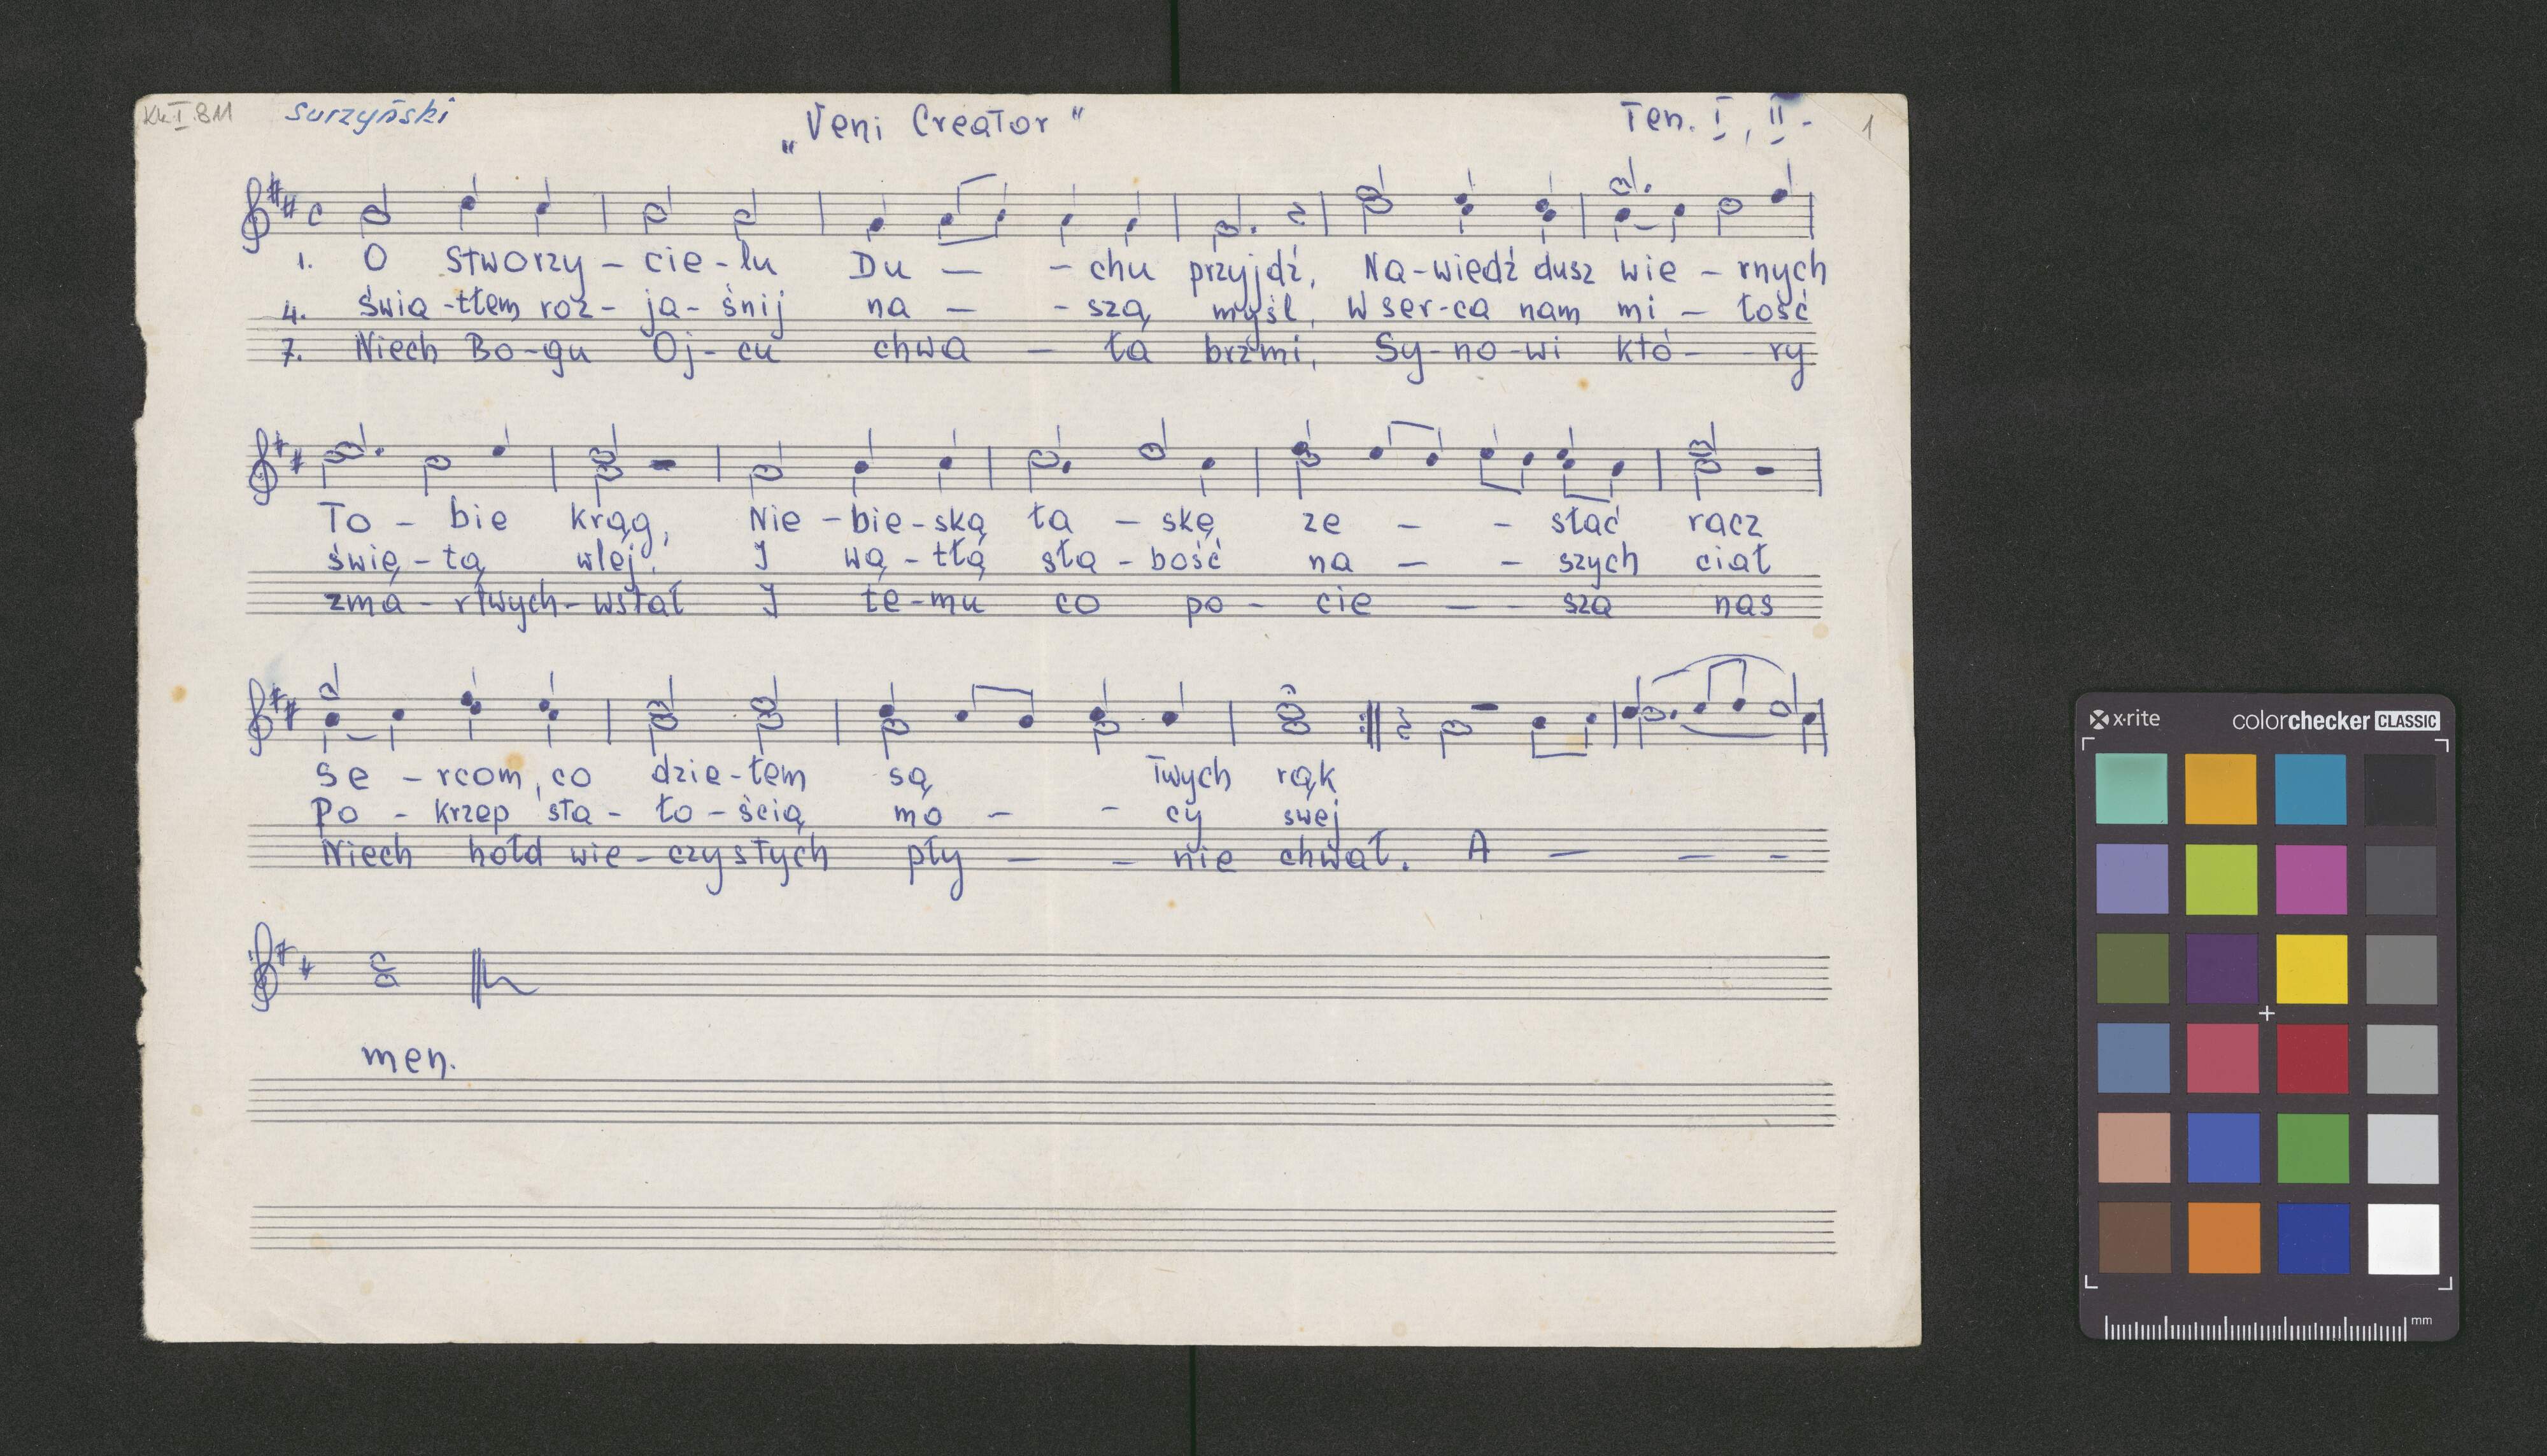 Kk I 811 Surzyński „Veni Creator" Ten. I, II- 1
1. O Stworzy - cie - lu Du - - chu przyjdź, Na - wiedź dusz wie - rnych
4. świa - tłem roz - ja - śnij na - - szą myśl, W ser - ca nam mi - łość
7. Niech Bo - gu Oj - cu chwa - ła brzmi, Sy - no - wi któ - ry
To - bie krąg, Nie - bie - ską ła - skę ze - - słać racz
świę - tą wlej. I wą - tłą sła - bość na - - szych ciał
zma - rtwych - wstał I te - mu co po - cie - - sza nas
Se - rcom, co dzie - łem są Twych rąk
Po - krzep sta - ło - ścią mo - - cy swej
Niech hołd wie - czystych pły - - nie chwał. A - - -
men.
x·rite colorchecker CLASSIC
mm